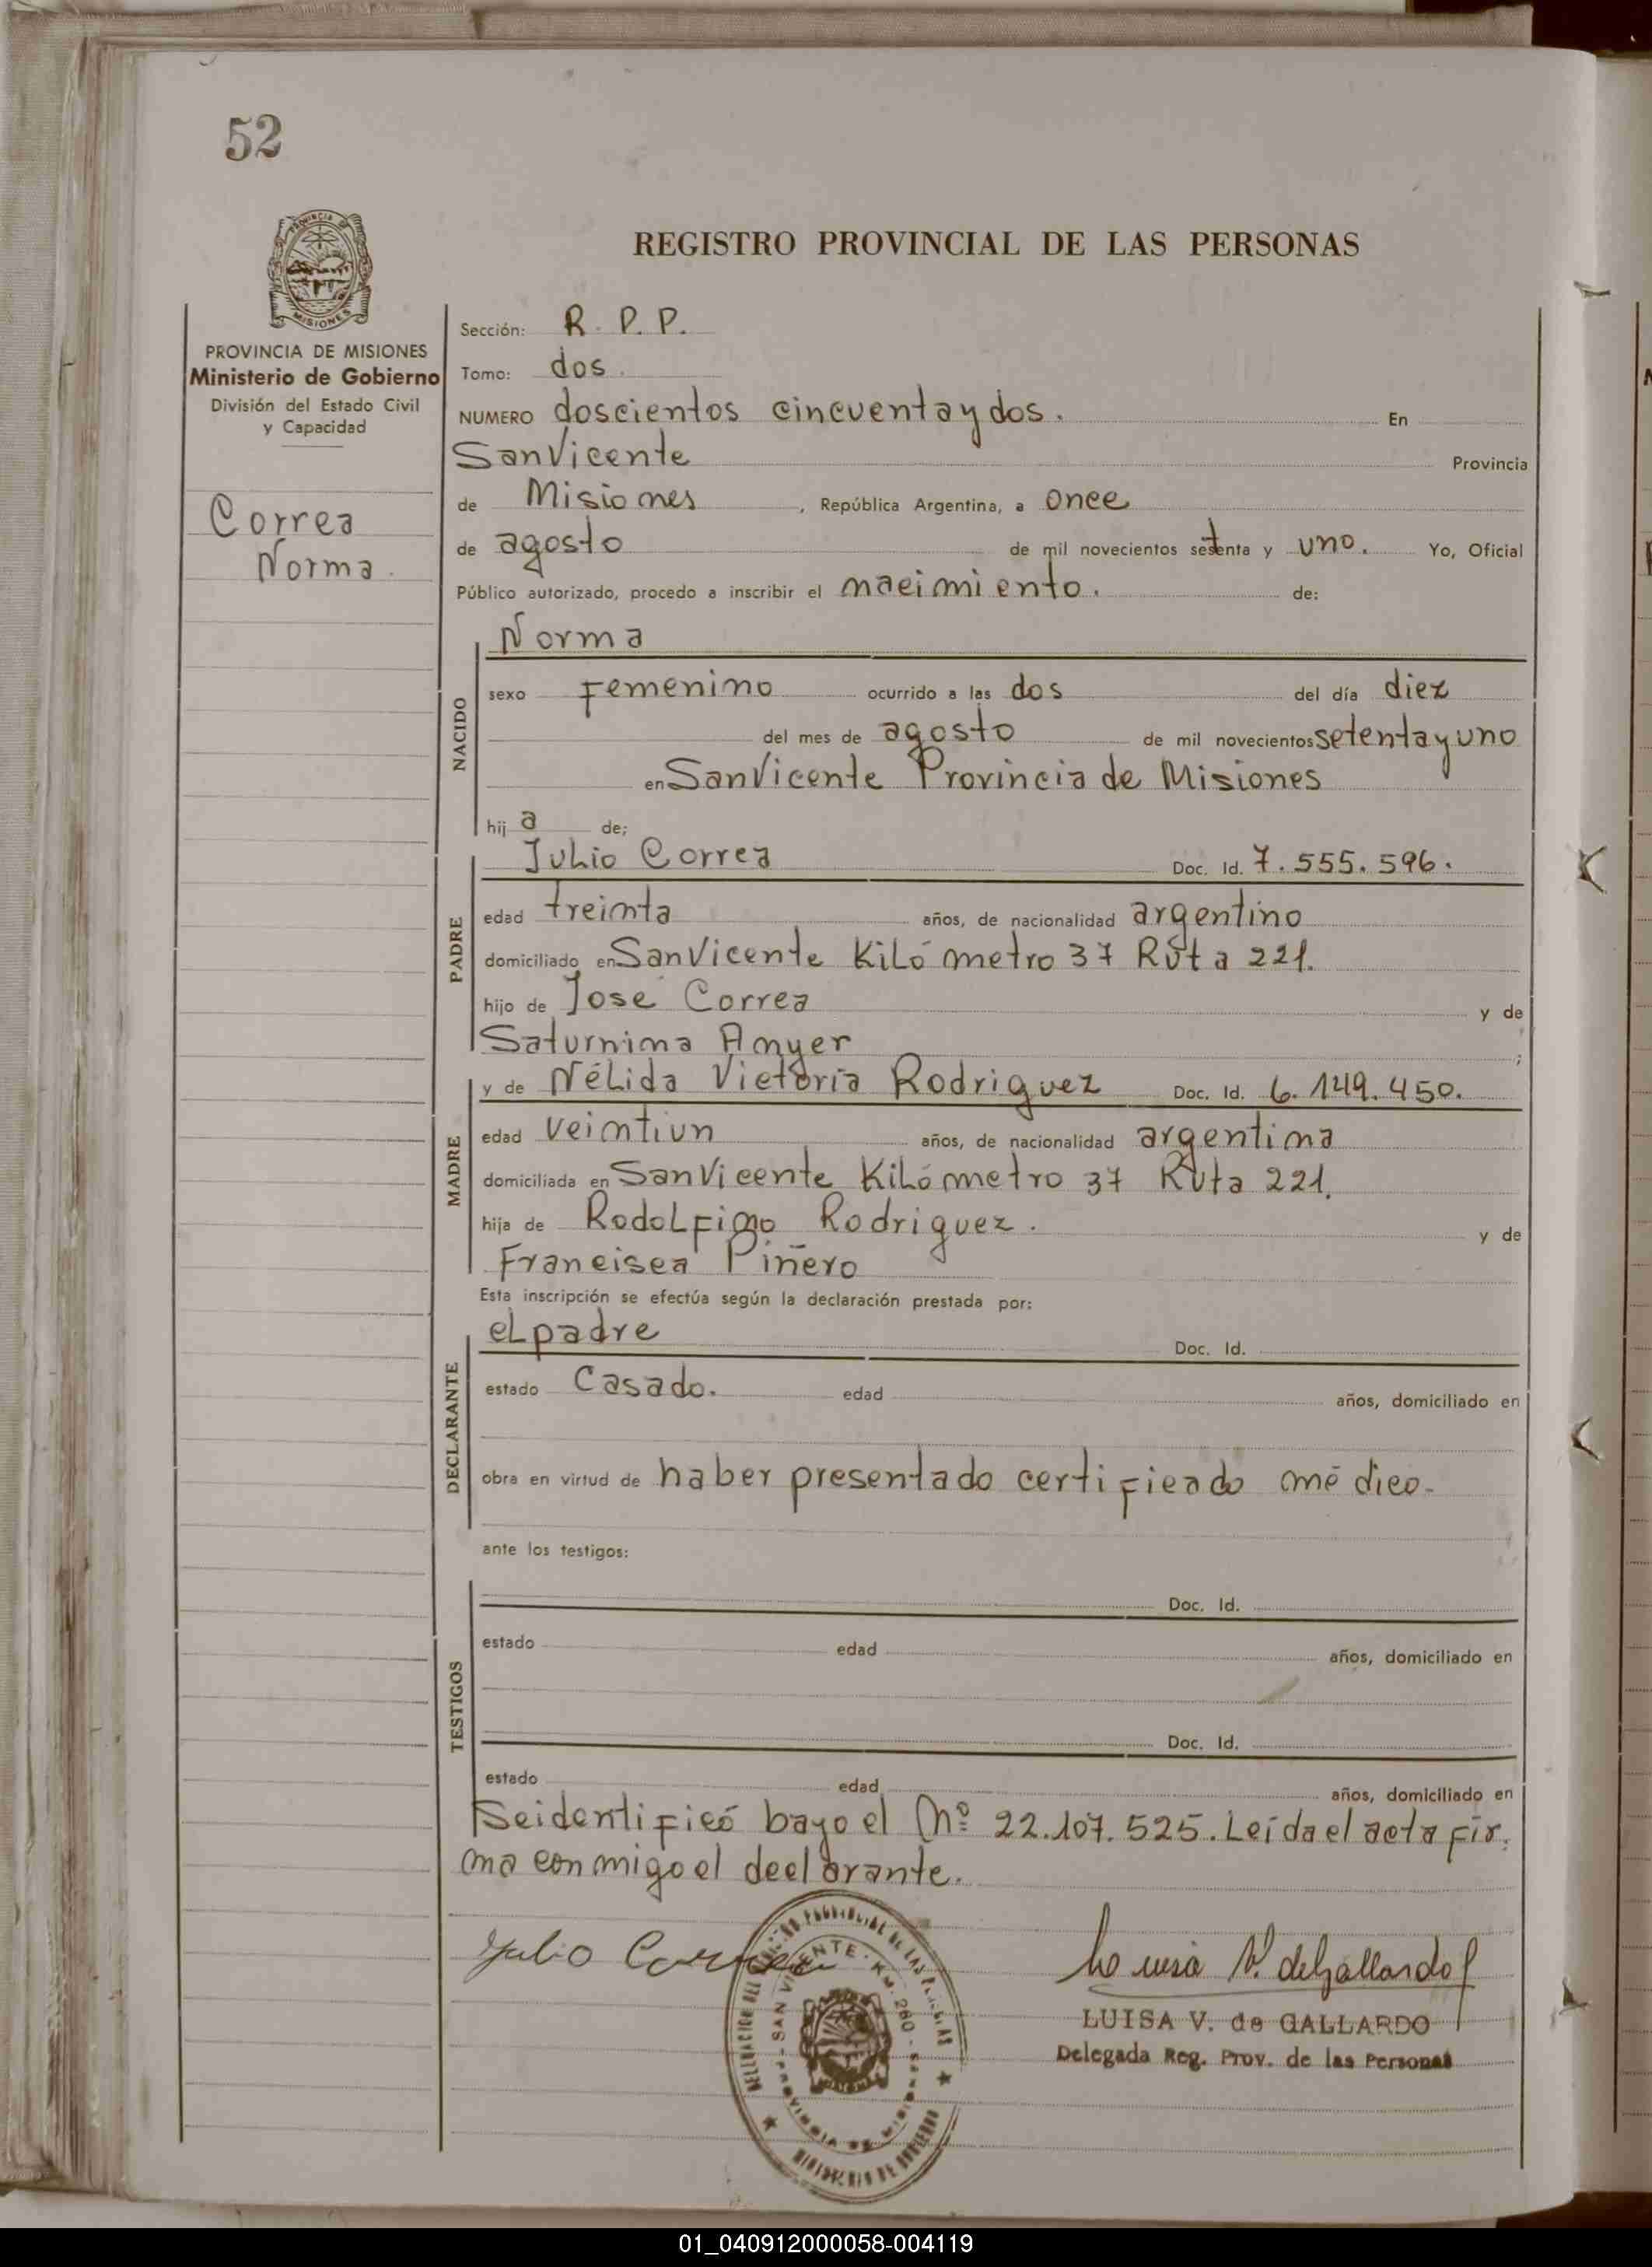 52
PROVINCIA DE MISIONES
PROVINCIA DE MISIONES
Ministerio de Gobierno
División del Estado Civil
y Capacidad
Correa
Norma.
REGISTRO PROVINCIAL DE LAS PERSONAS
Sección: R. P. P.
Tomo: dos.
NUMERO doscientos cincuenta y dos. En
San Vicente Provincia
de Misiones, República Argentina, a once
de agosto de mil novecientos setenta y uno. Yo, Oficial
Público autorizado, procedo a inscribir el nacimiento. de:
NACIDO
Norma
sexo Femenino ocurrido a las dos del día diez
del mes de agosto de mil novecientos setenta y uno
en San Vicente Provincia de Misiones
hij a de;
PADRE
Julio Correa Doc. Id. 7.555.596.
edad treinta años, de nacionalidad argentino
domiciliado en San Vicente Kilómetro 37 Ruta 221.
hijo de José Correa y de
Saturnina Anyer ;
MADRE
y de Nélida Victoria Rodriguez Doc. Id. 6.149.450.
edad veintiun años, de nacionalidad argentina
domiciliada en San Vicente Kilómetro 37 Ruta 221.
hija de Rodolfino Rodriguez. y de
Francisca Piñero
Esta inscripción se efectúa según la declaración prestada por:
DECLARANTE
el padre Doc. Id.
estado Casado. edad años, domiciliado en
obra en virtud de haber presentado certificado médico-
ante los testigos:
TESTIGOS
Doc. Id.
estado edad años, domiciliado en
Doc. Id.
estado edad años, domiciliado en
Se identificó bayo el Nº 22.107.525. Leída el acta fir.
ma conmigo el declarante.
Julio Correa
DELEGACION DEL REGISTRO PROVINCIAL DE LAS PERSONAS
SAN VICENTE - KM. 280 - PROVINCIA DE MISIONES
MINISTERIO DE GOBIERNO
Luisa V. de Gallardo
LUISA V. de GALLARDO
Delegada Reg. Prov. de las Personas
01_040912000058-004119